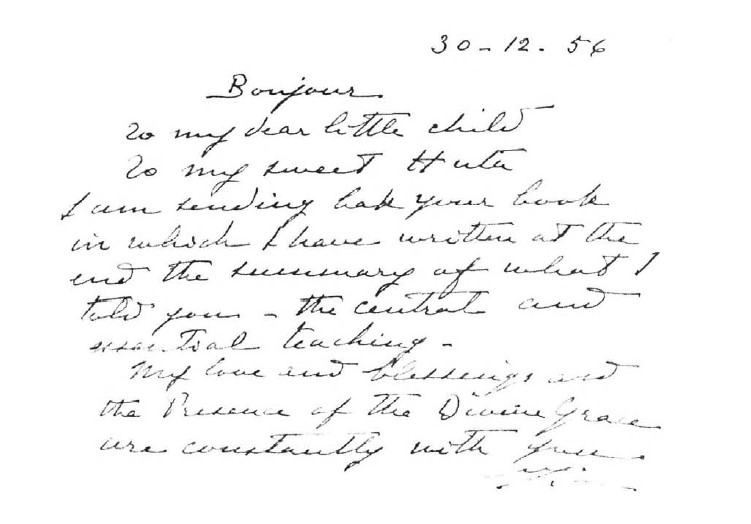 30-12-56
Bonjour
to my dear little child
to my sweet Huta
I am sending bak your book
in which I have written at the
end the summary of what I
told you - the central and
essential teaching -
My love and blessings and
the Presence of the Divine Grace
are constantly with you